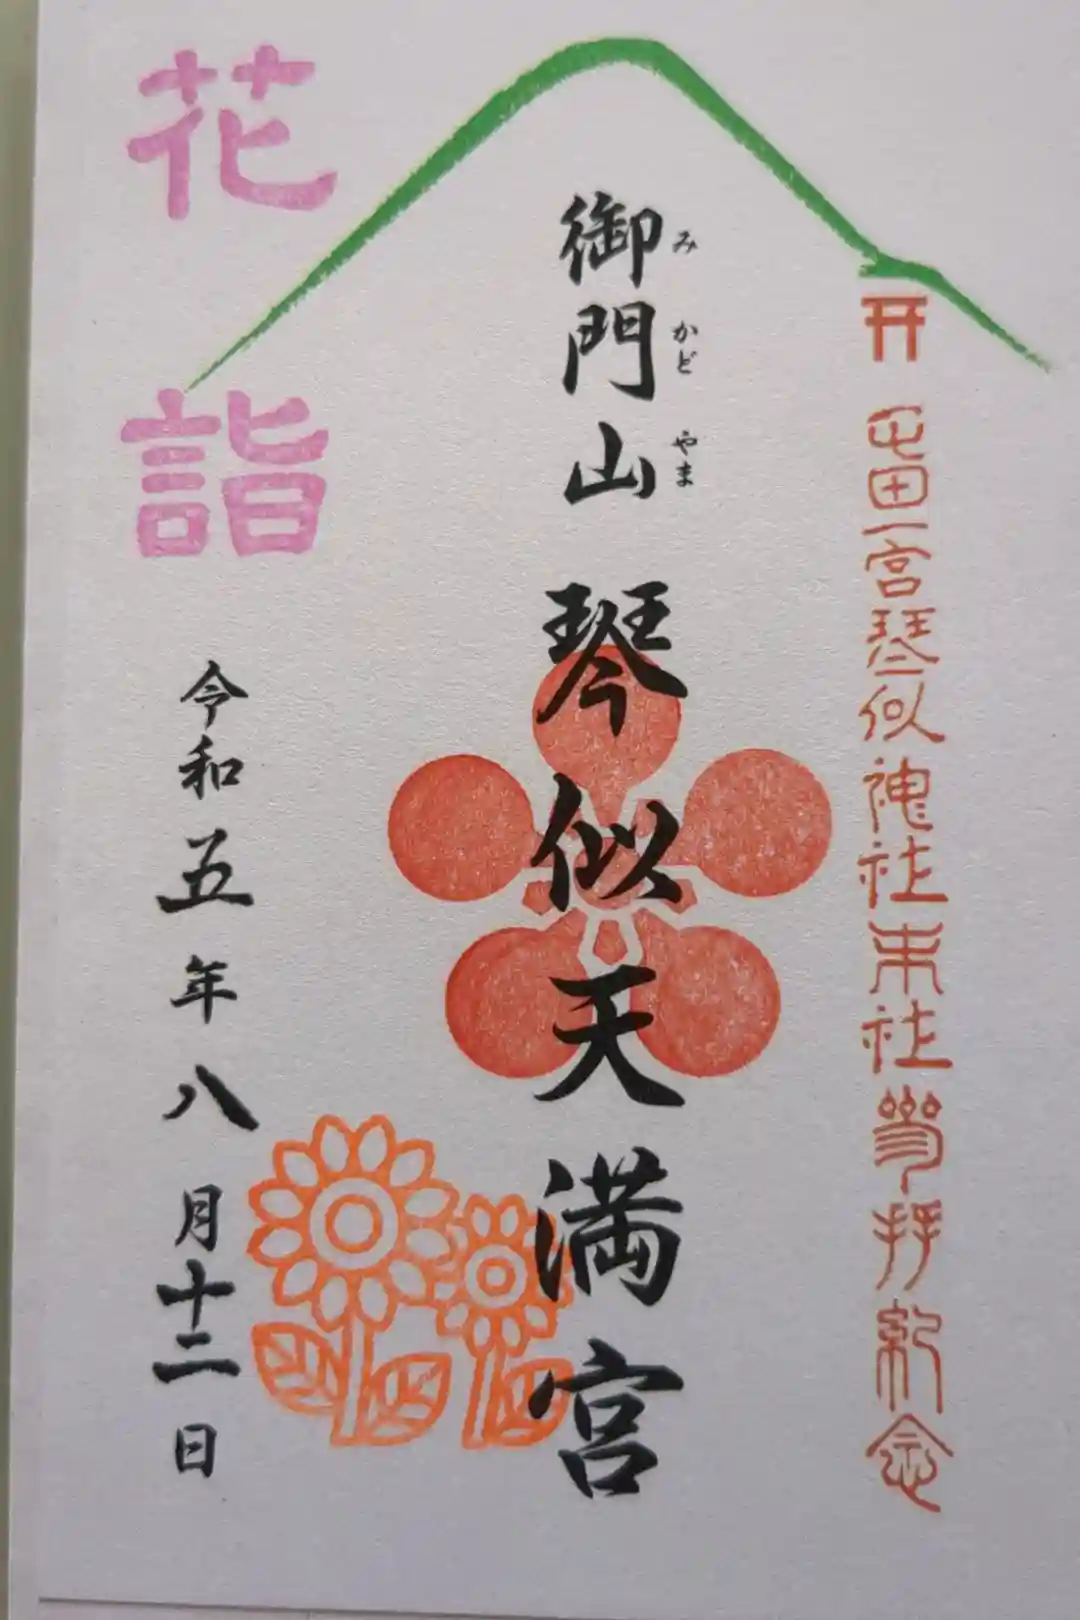 屯田一宮琴似神社末社参拝紀念
御門山 琴似天満宮
みかどやま
花詣
令和五年八月十二日